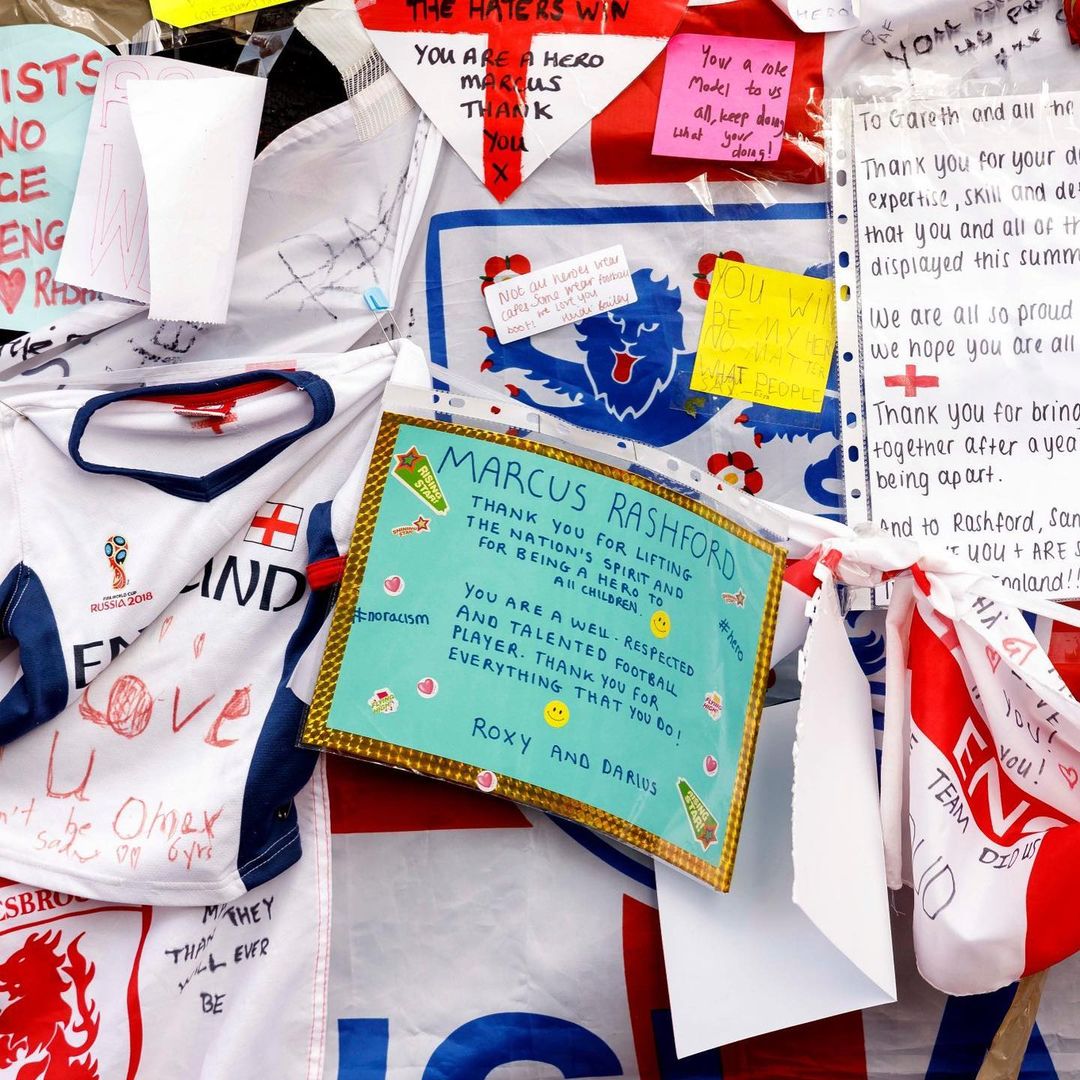 THE HATERS WIN
YOU ARE A HERO
MARCUS
THANK
YOU
X
Your a role
Model to us
all, keep doing
what your
doing!
HERO
ISTS
NO
CE
ENG
Not all heroes wear
capes some wear football
boot! we love you
YOU WILL
BE MY HER
NO MATTER
WHAT PEOPLE
SAY
To Gareth and all the
Thank you for your d
expertise, skill and de
that you and all of th
displayed this summ
We are all so proud
We hope you are all
Thank you for bring
together after a yea
being apart.
And to Rashford, San
YOU + ARE S
ngland!!
RUSSIA 2018
AND
EN
Love
U
n't be
sad
Omar
6 yrs
RISING
STAR!
SHINING
STAR!
MARCUS RASHFORD
THANK YOU FOR LIFTING
THE NATION'S SPIRIT AND
FOR BEING A HERO TO
ALL CHILDREN.
#noracism
#hero
YOU ARE A WELL-RESPECTED
AND TALENTED FOOTBALL
PLAYER. THANK YOU FOR
EVERYTHING THAT YOU DO!
FLYING
HIGH!
ROXY AND DARIUS
RISING
STAR!
YOU!
you!
ENG
TEAM
DID US
SBRO
THEY
WILL EVER
BE